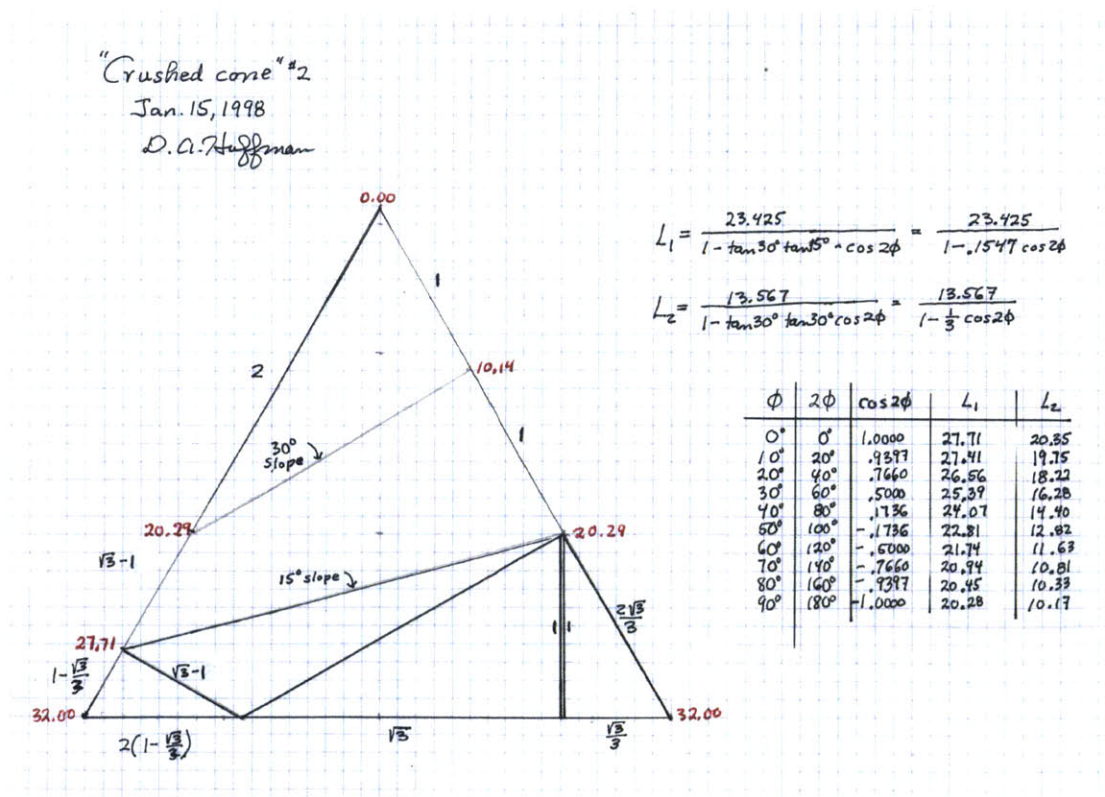 "Crushed cone" #2
Jan. 15, 1998
D.A. Huffman
0.00
1
2
10.14
1
30° slope
20.29
20.29
√3-1
15° slope
27.71
1-√3/3
√3-1
1
2√3/3
32.00
32.00
2(1-√3/3)
√3
√3/3
L₁ = 23.425 / (1-tan30° tan15° · cos2ϕ) = 23.425 / (1-.1547 cos2ϕ)
L₂ = 13.567 / (1-tan30° tan30° cos2ϕ) = 13.567 / (1-1/3 cos2ϕ)
ϕ 2ϕ cos2ϕ L₁ L₂
0° 0° 1.0000 27.71 20.35
10° 20° .9397 27.41 19.75
20° 40° .7660 26.56 18.22
30° 60° .5000 25.39 16.28
40° 80° .1736 24.07 14.40
50° 100° -.1736 22.81 12.82
60° 120° -.5000 21.74 11.63
70° 140° -.7660 20.94 10.81
80° 160° -.9397 20.45 10.33
90° 180° -1.0000 20.28 10.17